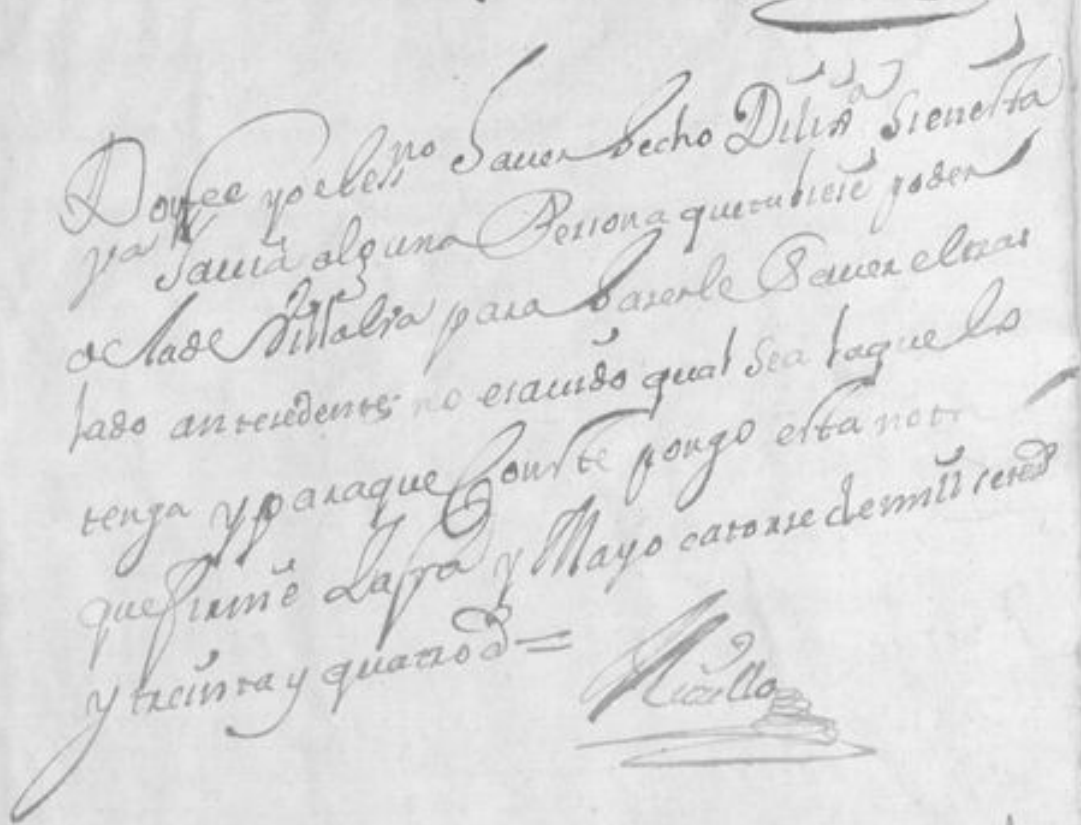 Doyfee yo el essno Saver hecho Dilixa Sienesta
va Savia alguna Persona que tubiese poder
de la de para haserle Saver el tras
lado antesedente no e savido qual sea la que lo
tenga y para que Conste pongo esta nota
que firme y Mayo catorse de mill seted
y treinta y quatro d =